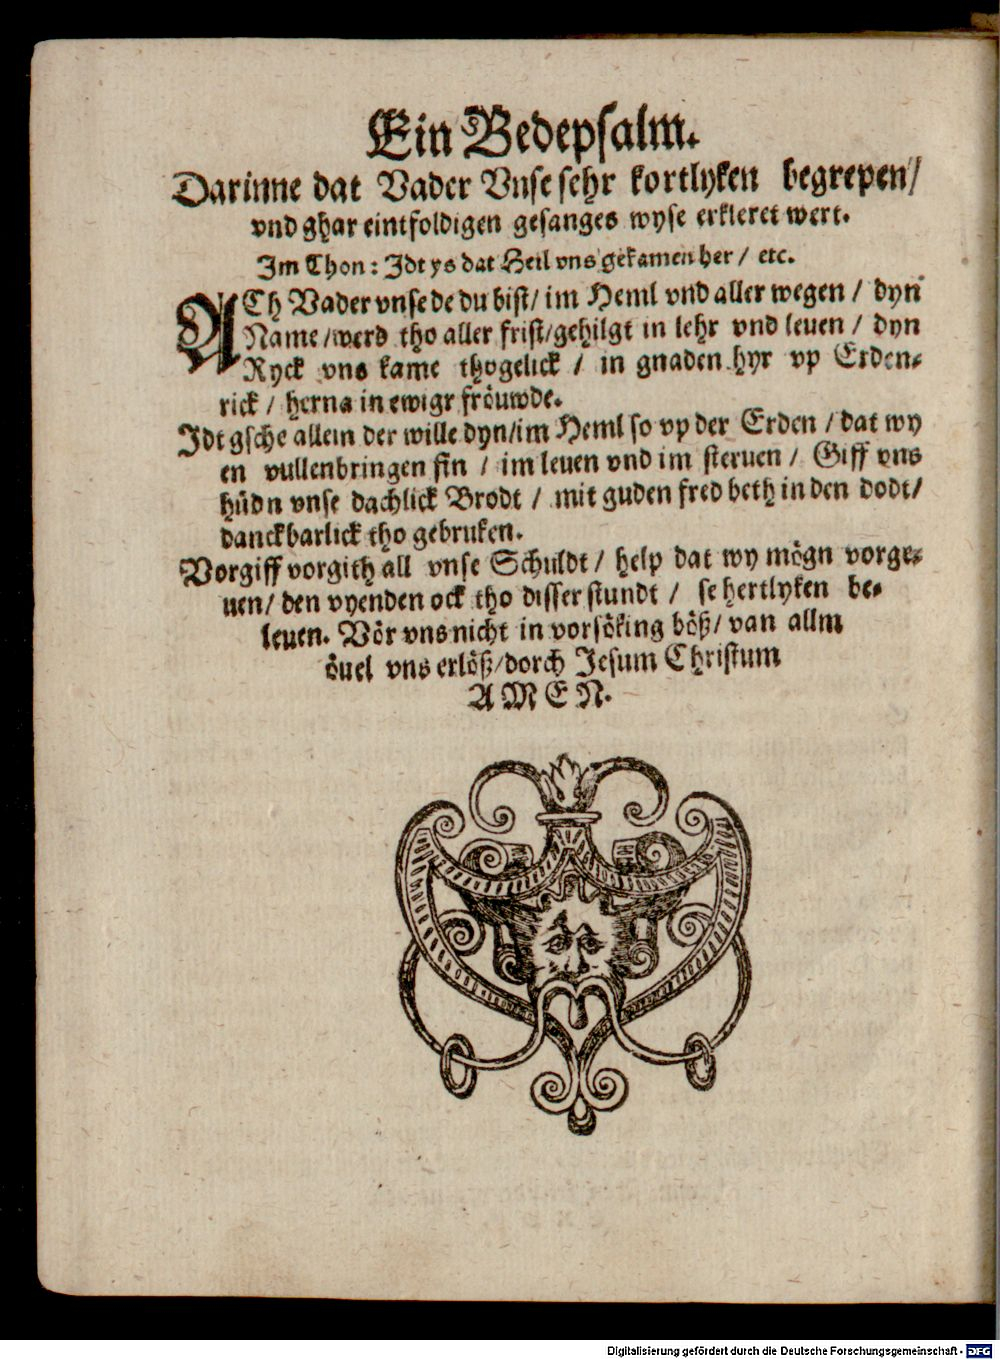 Ein Bedepſalm.
Darinne dat Vader Vnſe ſehr kortlyken begrepen/
vnd ghar eintfoldigen geſanges wyſe erkleret wert.
Im Thon: Idt ys dat Heil vns gekamen her / etc.
ACh Vader vnſe de du biſt/ im Heml vnd aller wegen / dyn
Name/werd tho aller friſt/gehilgt in lehr vnd leuen / dyn
Ryck vns kame thogelick / in gnaden hyr vp Erden⸗
rick / herna in ewigr fröuwde.
Idt gſche allein der wille dyn/im Heml ſo vp der Erden / dat wy
en vullenbringen fin / im leuen vnd im ſteruen / Giff vns
hüdn vnſe dachlick Brodt / mit guden fred beth in den dodt/
danckbarlick tho gebruken.
Vorgiff vorgith all vnſe Schuldt / help dat wy mögn vorge⸗
uen/ den vyenden ock tho diſſer ſtundt / ſe hertlyken be⸗
leuen. Vör vns nicht in vorſöking böß/ van allm
öuel vns erlöß/dorch Jeſum Chriſtum
AMEN.
Digitalisierung gefördert durch die Deutsche Forschungsgemeinschaft - DFG